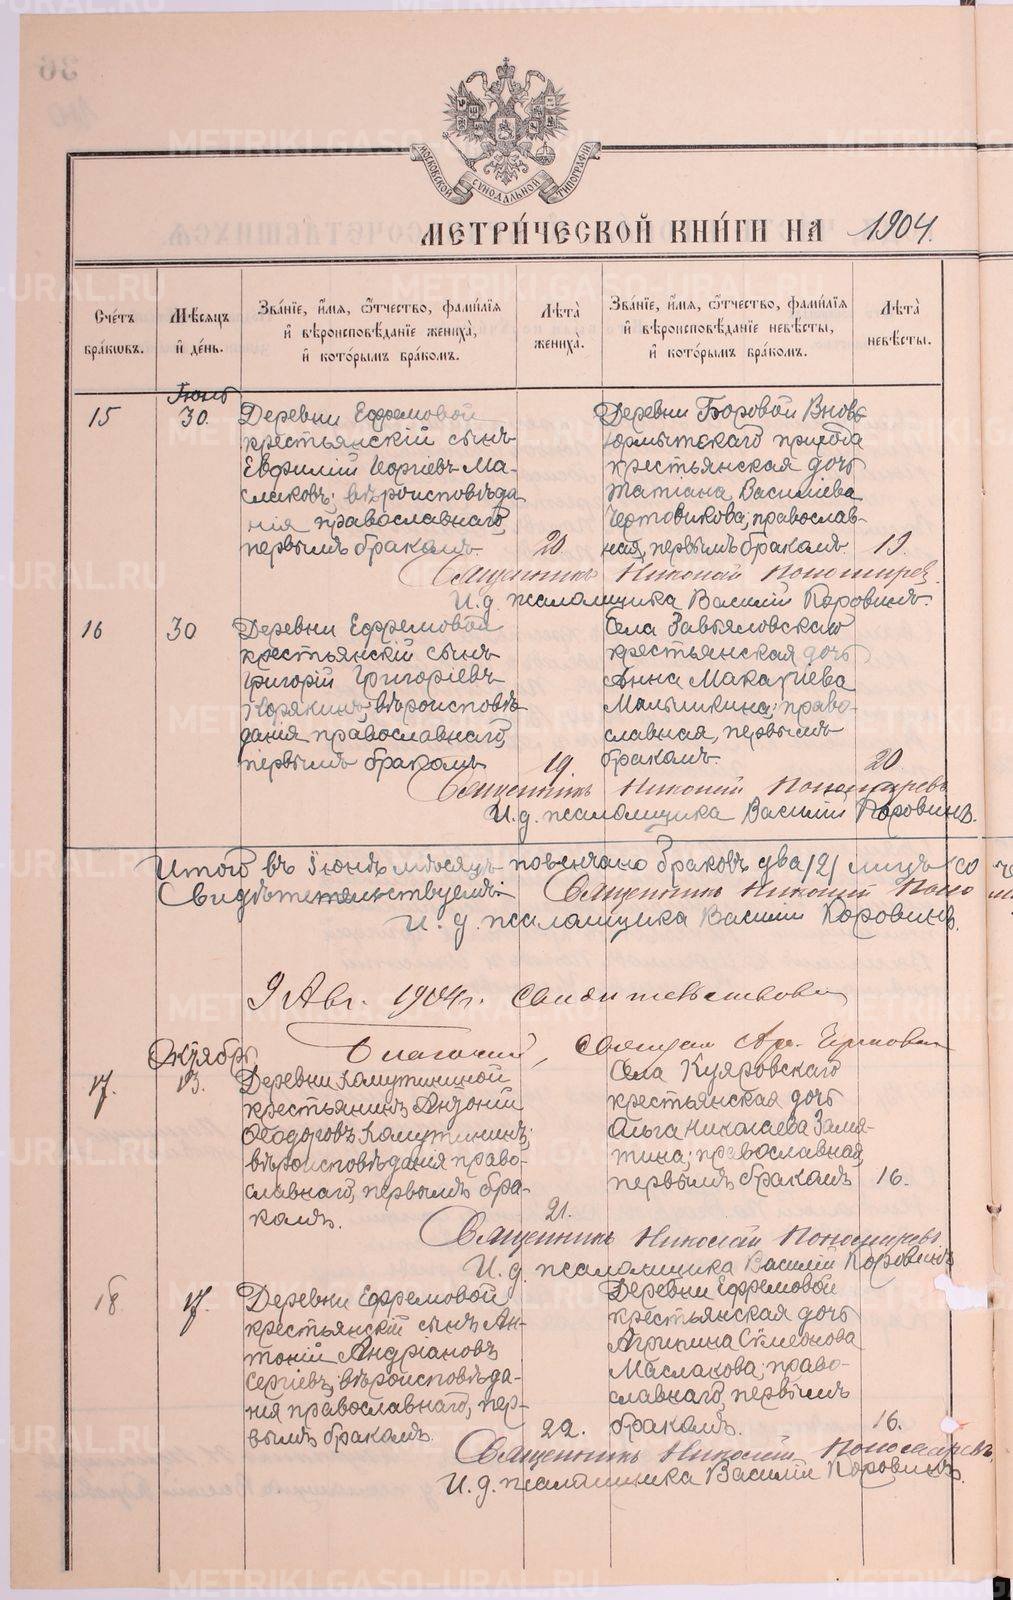 МОСКОВСКОЙ СУНОДАЛЬНОЙ ТИПОГРАФИИ
МЕТРИ́ЧЕСКОЙ КНИ́ГИ НА 1904.
Сче́тъ бра́кѡвъ.
Мѣ́сяцъ и҆ де́нь.
Зва́нїе, и҆́мя, ѻ҆́тчество, фами́лїя и҆ вѣроисповѣ́данїе жениха̀, и҆ кото́рымъ бра́комъ.
Лѣта̀ жениха̀.
Зва́нїе, и҆́мя, ѻ҆́тчество, фами́лїя и҆ вѣроисповѣ́данїе невѣ́сты, и҆ кото́рымъ бра́комъ.
Лѣта̀ невѣ́сты.
Іюнь
15
30
Деревни Ефремовой
крестьянскій сынъ
Евфимій Георгіевъ Ма-
слаковъ; вѣроисповѣда
нія православнаго,
первымъ бракомъ.
20.
Деревни Боровой Вновь
Юрмытскаго прихода
крестьянская дочь
Татіана Василіева
Чертовикова; православ-
ная, первымъ бракомъ.
19.
Священникъ Николай Пономаревъ.
И. д. псаломщика Василій Коровинъ.
16
30
Деревни Ефремовой
крестьянскій сынъ
Григорій Григоріевъ
Корякинъ; вѣроисповѣ
данія православнаго,
первымъ бракомъ
19.
Села Завьяловскаго
крестьянская дочь
Анна Макаріева
Малышкина; право-
славная, первымъ
бракомъ.
20.
Священникъ Николай Пономаревъ
И. д. псаломщика Василій Коровинъ.
Итого въ Іюнѣ мѣсяцѣ повенчано браковъ два /2/ лицъ со
Свидѣтельствуемъ: Священникъ Николай Поно
И. д. псаломщика Василій Коровинъ.
9 Авг. 1904 г. свидѣтельствовалъ
Благочин., священ.
Октябрь
17.
13.
Деревни Камутинцной
крестьянинъ Андоній
Ѳеодоровъ Камутинин;
вѣроисповѣданія право-
славнаго, первымъ бра-
комъ.
21.
Села Куяровскаго
крестьянская дочь
Ольга Николаева Замя-
тина; православная,
первымъ бракомъ
16.
Священникъ Николай Пономаревъ
И. д. псаломщика Василій Коровинъ
18.
17.
Деревни Ефремовой
крестьянскій сынъ Ан-
тоній Андріановъ
Сергіевъ; вѣроисповѣда-
нія православнаго, пер-
вымъ бракомъ.
22.
Деревни Ефремовой
крестьянская дочь
Агрипина Сѵмеонова
Маслакова; право-
славнаго, первымъ
бракомъ.
16.
Священникъ Николай Пономаревъ.
И. д. псаломщика Василій Коровинъ.
METRIKI.GASO-URAL.RU